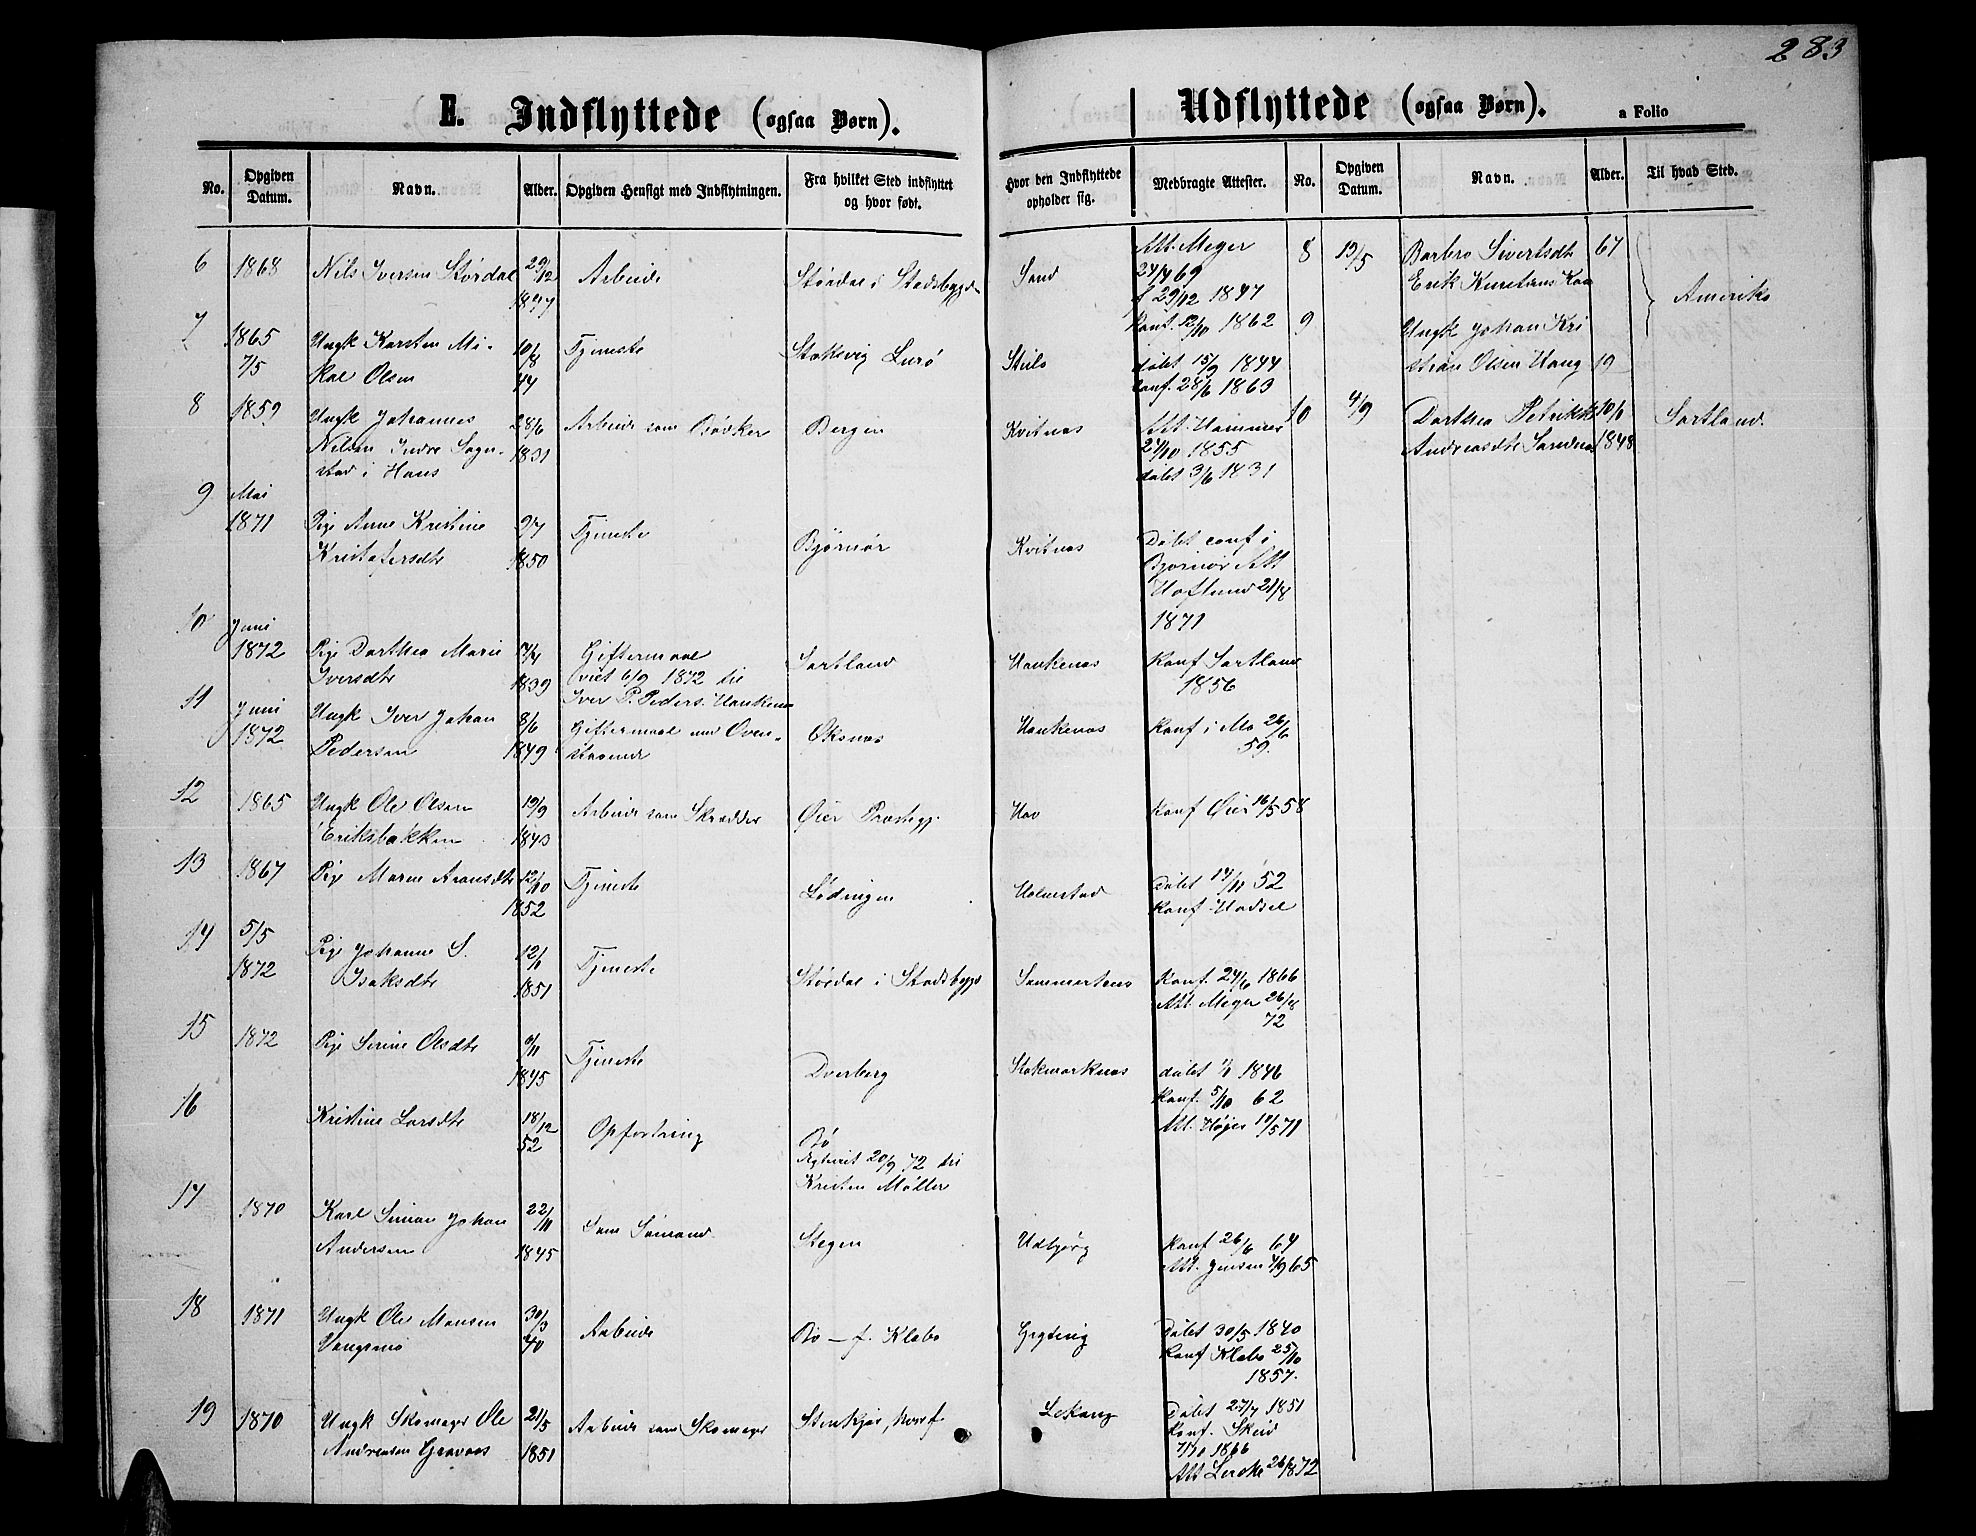 283
E. Indflyttede (ogsaa Børn).
Udflyttede (ogsaa Børn).
a Folio
No.
Opgiven Datum.
Navn.
Alder.
Opgiven Hensigt med Indflytningen.
Fra hvilket Sted indflyttet og hvor født.
Hvor den Indflyttede opholder sig.
Medbragte Attester.
No.
Opgiven Datum.
Navn.
Alder.
Til hvad Sted.
6 1868 Nils Iversen Stördal 29/12 1847 Arbeide Stördal i Stadsbygd Sand Att. Meyer
f 29/12 1847
Konf. 12/10 1862
7 1865 7/5 Ungk Karsten Mi-
kal Olsen 10/8 44 Tjeneste Stoksvig Lurö
döbt 15/9 1844
conf. 28/6 1863
8 1859 Ungk Johannes
Nilsen Indre Sogn-
stad i Hous 28/6 1831 Arbeide som Bövker Bergen Kvitnæs Att. Hammer
27/10 1855
döbt 3/6 1831
9 Mai 1871 Pige Anne Kristine
Kristofersdtr 9/7 1850 Tjeneste Björnör Kvitnæs Döbt conf i
Björnör Att
Hoflund 21/8
1871
10 Juni 1872 Pige Dorthea Marie
Iversdtr 1839 Giftermaal
(viet 6/9 1872 til
Iver P. Peders. Haukenæs Sortland Haukenæs Konf Sortland
1856
11 Juni 1872 Ungk Iver Johan
Pedersen 8/6 1849 Giftermaal med Oven-
staaende Öksnæs Haukenæs Konf i Mo 26/6
59.
12 1865 Ungk Ole Olsen
Eriksbakken 19/9 1843 Arbeide som Skrædder Öier Præstegj. Hov Konf Öier 16/5 58
13 1867 Pige Maren Aronsdtr 12/10 1852 Tjeneste Lödingen Holmstad Döbt 14/11 52
Konf Hadsel
14 5/5 1872 Pige Johanna S.
Isaksdtr 1851 Tjeneste Stördal i Stadsbygd Sommernæs Konf. 24/6 1866
Att. Meyer 26/8
72
15 1872 Pige Serine Olsdtr 1845 Tjeneste Dverberg Stokmarknæs döbt 1846
Konf. 5/10 62
Att. Höyer 571
16 Kristine Larsdtr 18/12 52 Opfostring Bö
Egteviet 20/9 72 til
Kristen Möller
17 1870 Karl Simon Johan
Andersen 22/11 1845 Som Sömand Stegen Udbjörg Konf 26/6 64
Att. Jensen 4/9 65
18 1871 Ungk Ole Monsen
Vangsmo 30/3 40 Arbeide Bö – f. Klæbo Gryting Döbt 30/5 1840
Konf Klæbo 25/10
1857.
19 1870 Ungk Skomager Ole
Andreasen Gravaas 21/5 1851 Arbeide som Skomager Stenkjær Lekang Döbt 27/7 1851
Konf. Skeid
7/10 1866
Att Lerche 26/8 72
8 19/5 Barbro Sivertsdtr 67
Erik Kristians
9 Ungk Johan Kri
stian Olsen Haug 19 Amerika
10 4/9 Dorthea Petrikke
Andreasdtr Sandnæs 1848 Sortland.